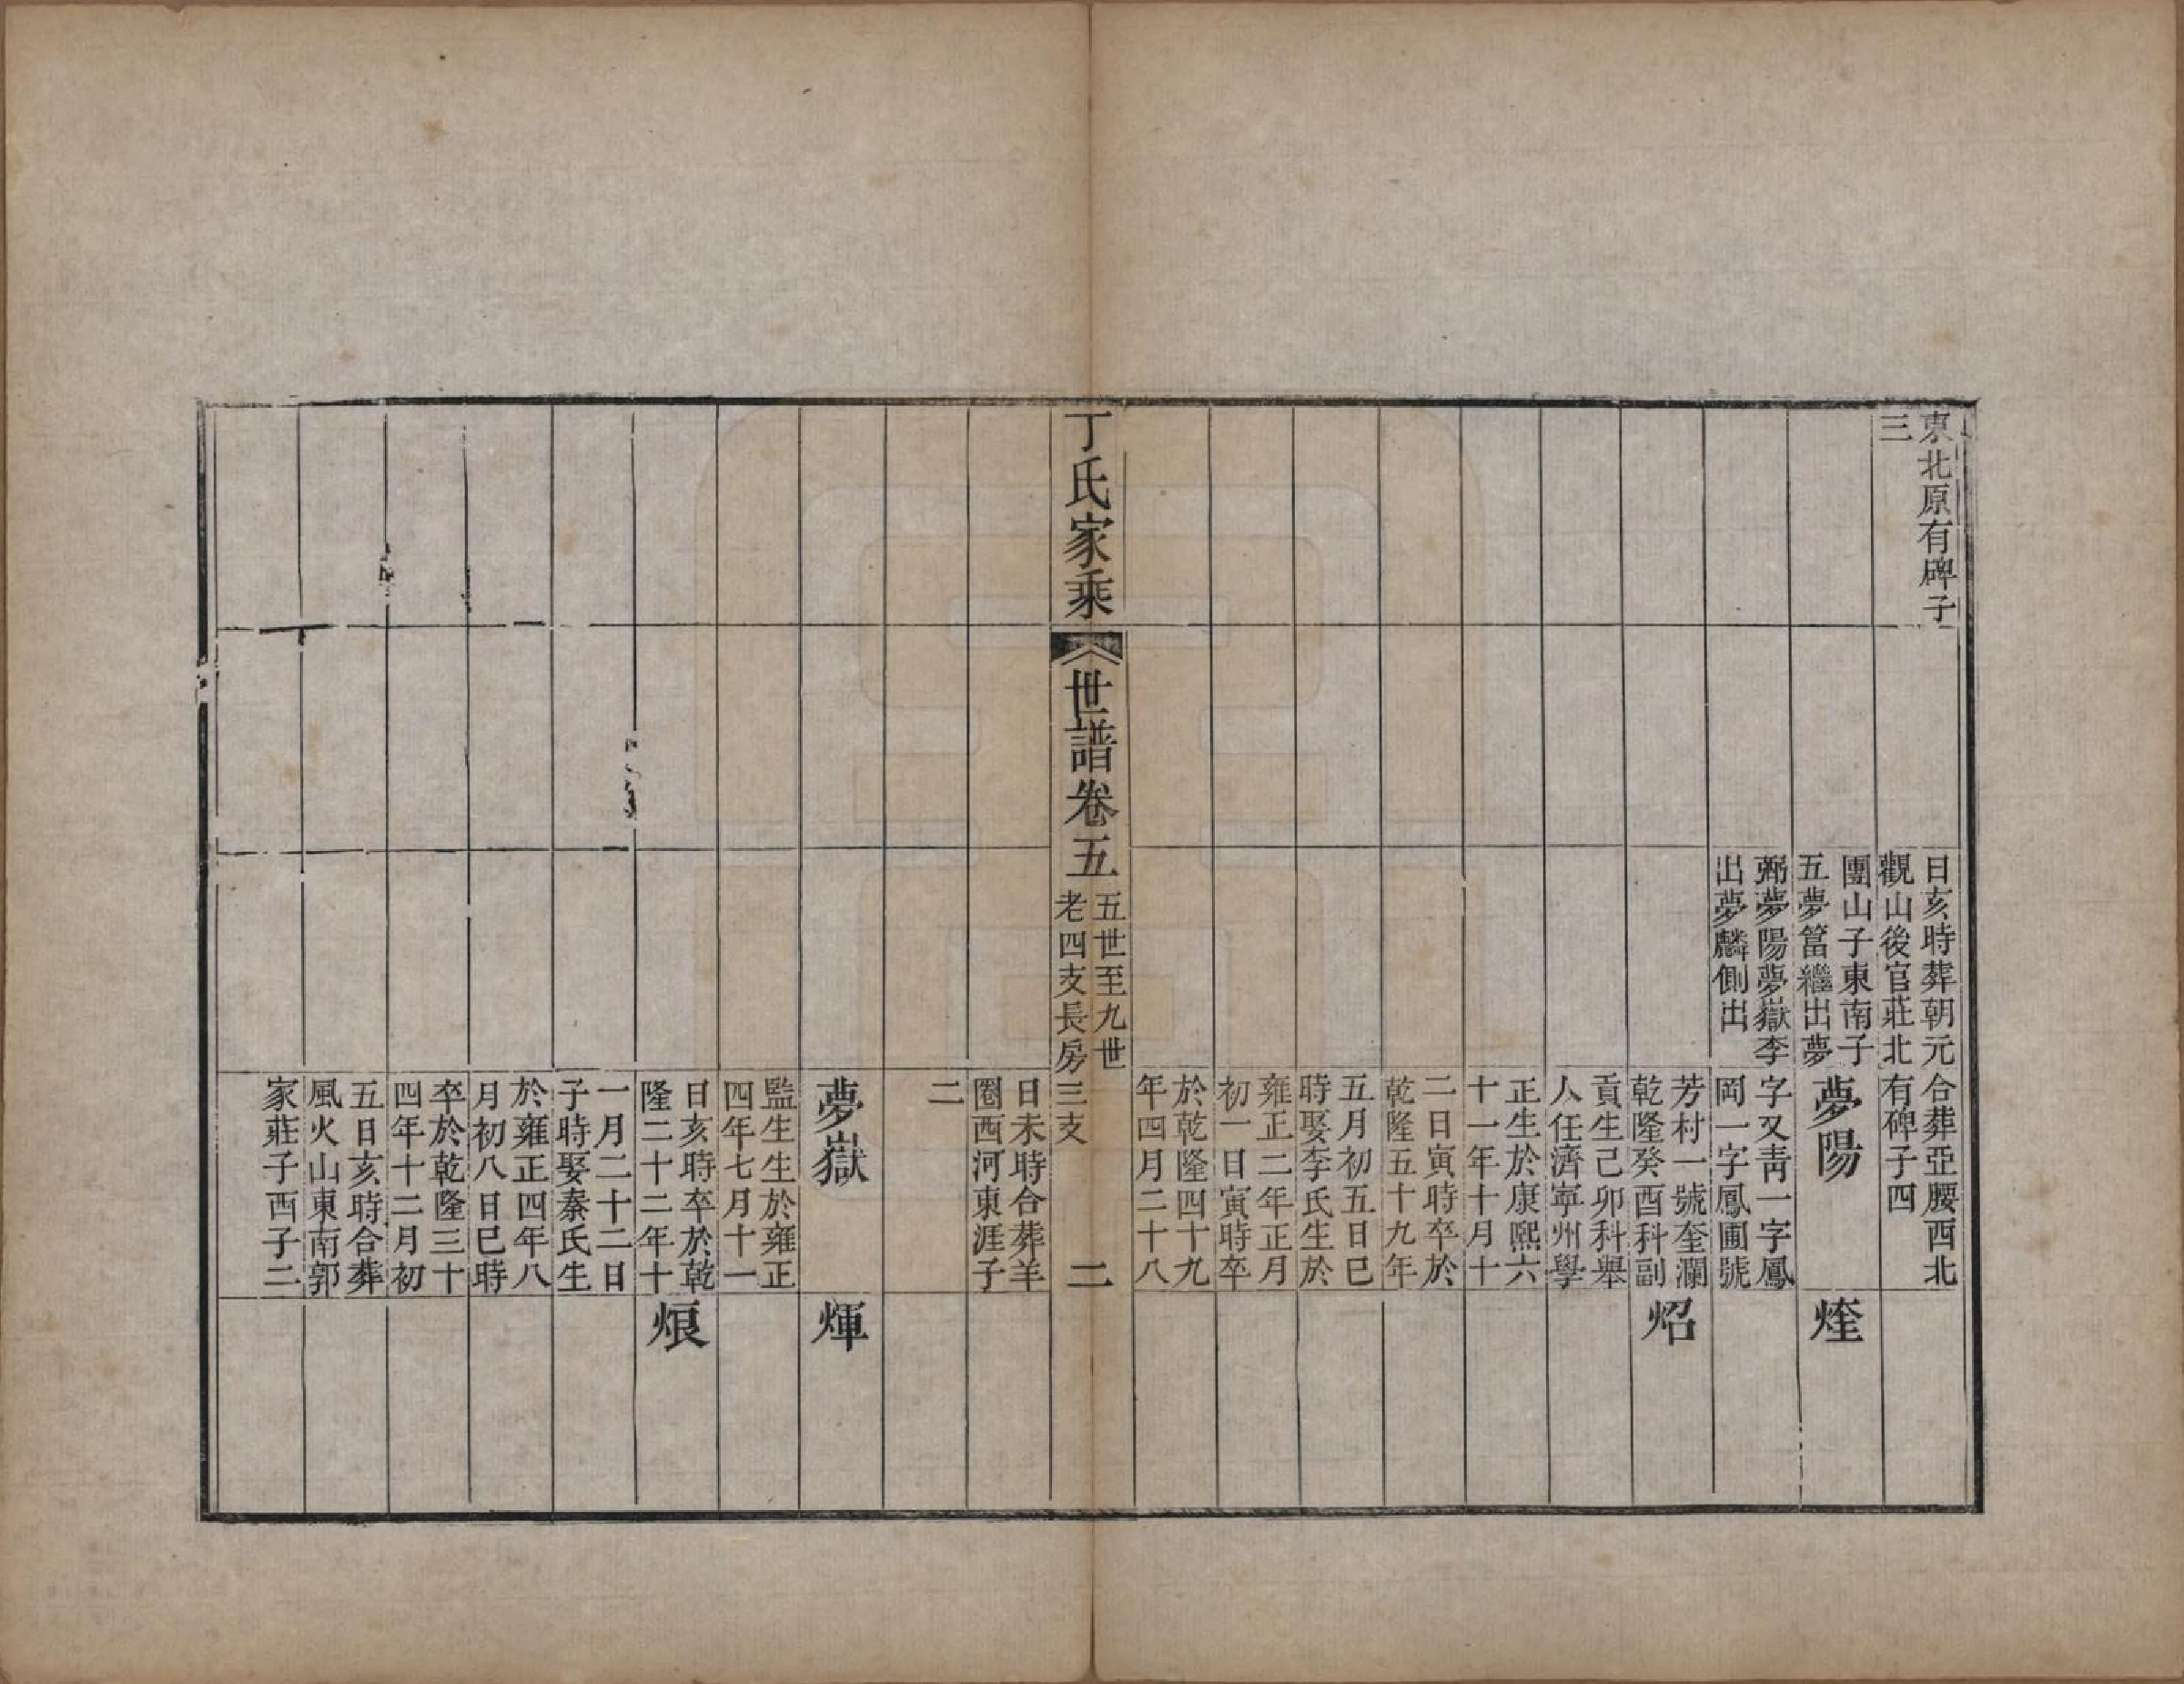 東北原有碑子
三
日亥時葬朝元
觀山後官莊北
團山子東南子
五夢篃繼出夢
弼夢陽夢嶽李
出夢麟側出
合葬亞腰西北
有碑子四
夢陽
字又靑一字鳳
岡一字鳳圃號
芳村一號奎瀾
乾隆癸酉科副
貢生己卯科舉
人任濟寧州學
正生於康熙六
十一年十月十
二日寅時卒於
乾隆五十九年
五月初五日巳
時娶李氏生於
雍正二年正月
初一日寅時卒
於乾隆四十九
年四月二十八
煃
炤
丁氏家乘
世譜卷五
五世至九世
老四支長房三支
二
日未時合葬羊
圈西河東涯子
二
夢嶽
監生生於雍正
四年七月十一
日亥時卒於乾
隆二十二年十
一月二十二日
子時娶秦氏生
於雍正四年八
月初八日巳時
卒於乾隆三十
四年十二月初
五日亥時合葬
風火山東南郭
家莊子西子二
煇
烺